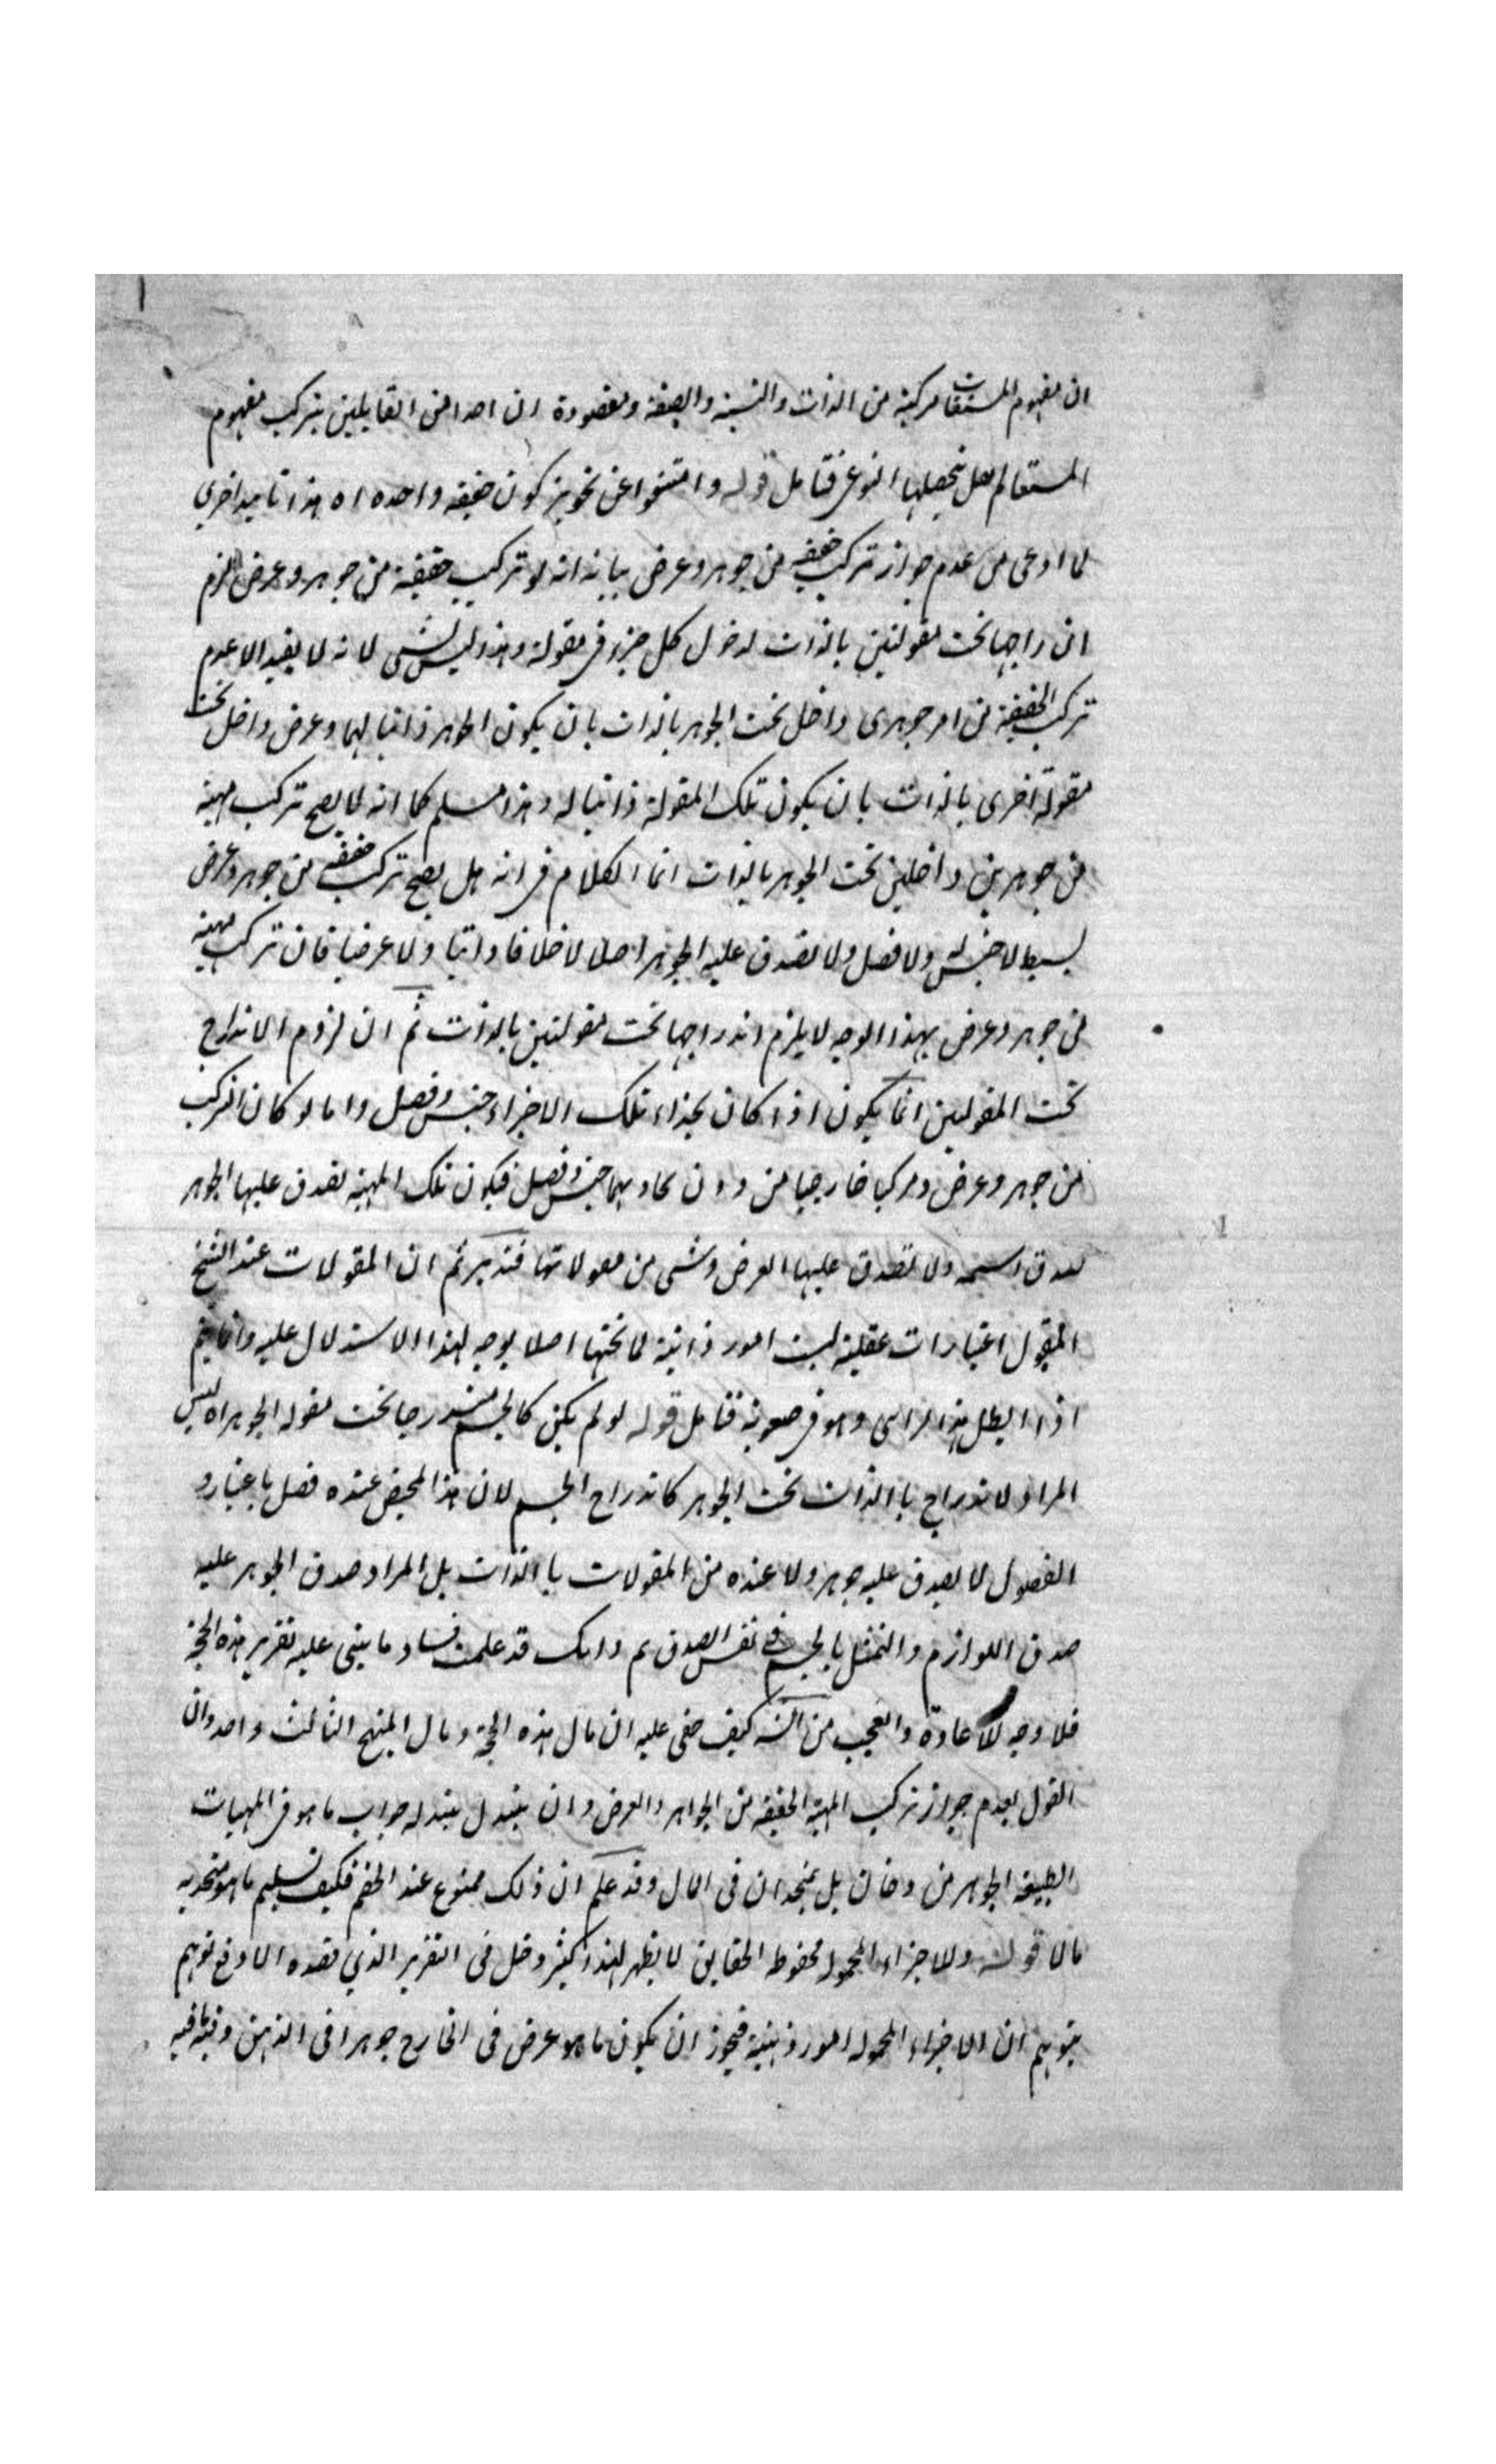 ان مفهوم المشتقات مركبة من الذات والنسبة والصفة ومقصودة ان احدا من القايلين بتركب مفهوم
المشتق لم يقل بتحصلها النوعي فتامل قوله وامتنعوا عن تجويز كون حقيقة واحدة اه هذا تاييد اخرى
لما ادعى من عدم جواز تركب حقيقة من جوهر وعرض بيانه انه لو تركب حقيقة من جوهر وعرض لزم
اندراجها تحت مقولتين بالذات لدخول كل جزء في مقولة وهذا ليس بشى لانه لا يفيد الا عدم
تركب الحقيقة من امر جوهرى داخل تحت الجوهر بالذات بان يكون الجوهر ذاتيا لهما وعرض داخل تحت
مقولة اخرى بالذات بان يكون تلك المقولة ذاتيا له وهذا مسلم كما انه لا يصح تركب مهية
من جوهرين داخلين تحت الجوهر بالذات انما الكلام في انه هل يصح تركب حقيقة من جوهر وعرض
بسيط لا جنس له ولا فصل ولا يصدق عليه الجوهر اصلا لا ذاتيا ولا عرضيا فان تركب مهية
من جوهر وعرض بهذا الوجه لا يلزم اندراجها تحت مقولتين بالذات ثم ان لزوم الاندراج
تحت المقولتين انما يكون اذا كان بحذاء تلك الاجزاء جنس وفصل واما لو كان التركب
من جوهر وعرض ومركبا خارجيا من دون يحاذيهما جنس وفصل فيكون تلك المهية يصدق عليها الجوهر
ولا يصدق عليها العرض وشى من مقولاتها فتدبر ثم ان المقولات عند الشيخ
المقتول اعتبارات عقلية ليست امور ذاتية لما تحتها اصلا يوجه لهذا الاستدلال عليه وانما يتم
اذا ابطل هذا الراى وهو في صعوبة فتامل قوله لو لم يكن كالجسم مندرجا تحت مقولة الجوهر اه ليس
المراد الاندراج باالذات تحت الجوهر كاندراج الجسم لان هذا المحض عنده فصل باعتبار و
الفصول لا يصدق عليه جوهر ولا عنده من المقولات باالذات بل المراد صدق الجوهر عليه
صدق اللوازم والتمثل بالجسم في نفس الصدق ثم وانك قد علمت فساد ما يبنى عليه تقرير هذه الحجة
فلا وجه للاعادة والعجب من انه كيف خفى عليه ان مال هذه الحجة ومال المنهج الثالث واحد وان
القول بعدم جواز تركب المهية الحقيقة من الجواهر والعرض وان يتبدل بتبدله جواب ما هو في المهيات
الطبيعة الجوهر من بل متحدان في المال وقد علم ان ذلك ممنوع عند الخصم فكيف تسليم ما هو متحد به
مالا قوله والاجزاء المحمولة محفوظ الحقايق لا يظهر لهذا كثير دخل في التقرير الذي قصده الا دفع توهم
يتوهم ان الاجزاء المحمولة امور ذهنية فيجوز ان يكون ما هو عرض في الخارج جوهرا في الذهن